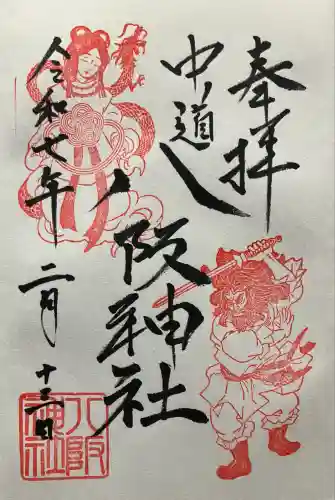 奉拝
中ノ道
八阪神社
令和七年二月十三日
八阪
神社